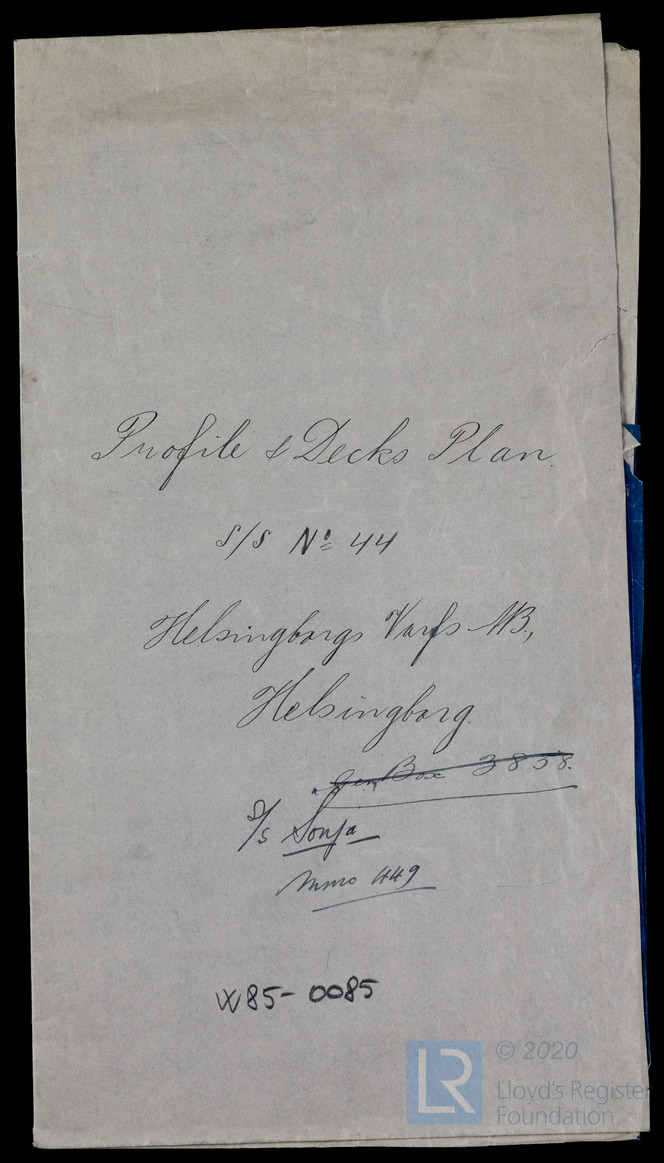 Profile & Decks Plan.
S/S Nº 44
Helsingborgs Varfs AB.,
Helsingborg.
Box 3858.
S/s Sonja
449
W85-0085
LR
© 2020
Lloyd's Register
Foundation